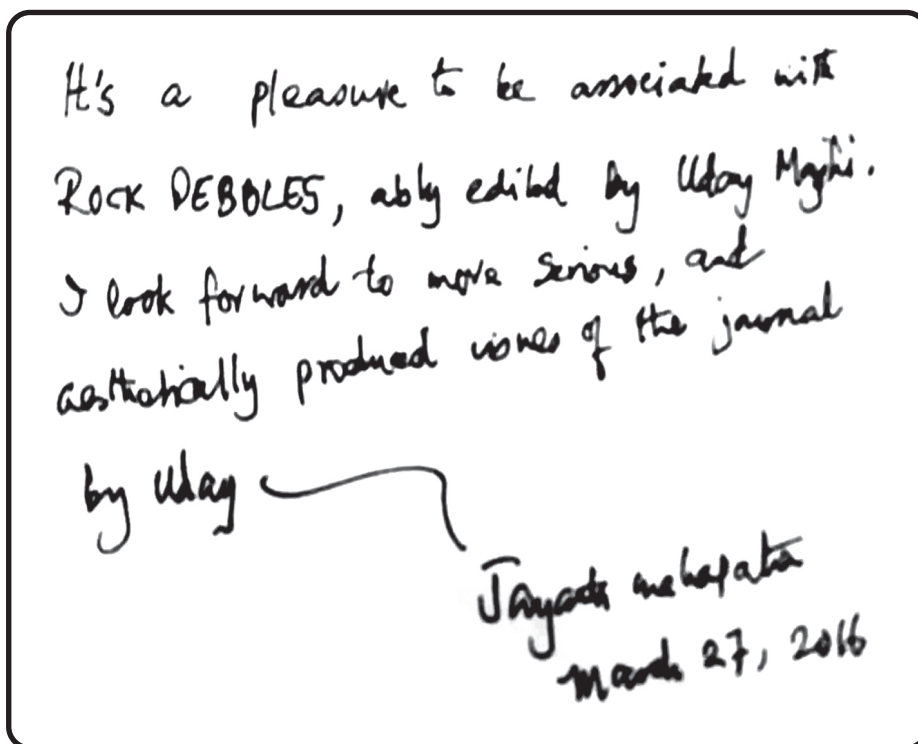 It's a pleasure to be associated with
ROCK PEBBLES, ably edited by Uday Majhi.
I look forward to more serious, and
aesthetically produced issues of the journal
by Uday
Jayanta mahapatra
March 27, 2016